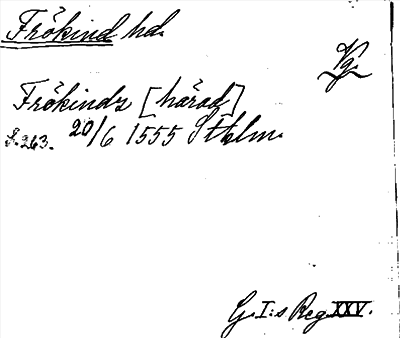 Frökind hd.
Vg.
Frökinds [härad]
S. 263. 20/6 1555 Sthlm.
G. I:s Reg. XXV.